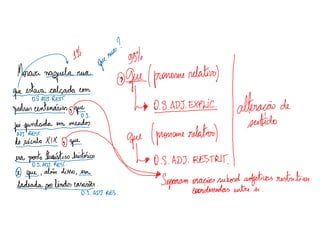 1%
que rua?
99%
Morava naquela rua
que estava calçada com
O.S ADJ. REST
pedras centenárias, que
O.S.
foi quindada em meados
ADJ REST.
do século XIX, que
era ponto turístico histórico
O.S. ADJ. REST
e que, além disso, era
ladeada por lindos casarões
O.S. ADJ RES.
, Que (pronome relativo)
↳ O.S ADJ. EXPLIC.
que (pronome relativo)
↳ O.S. ADJ. RESTRIT.
alteração de
sentido
→ Separam orações subord adjetivas restritivas
coordenadas entre si